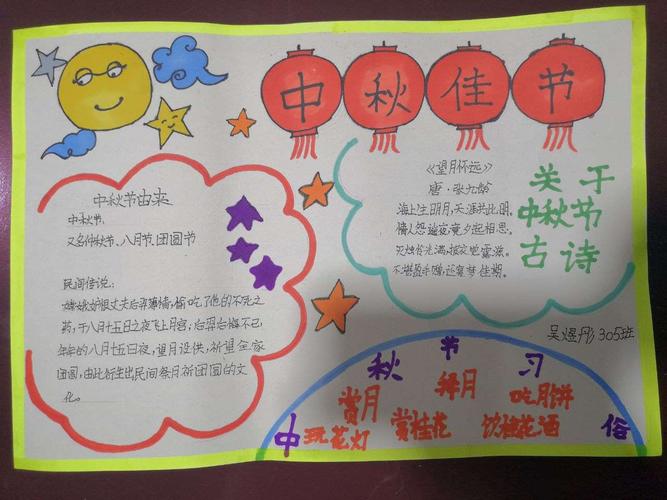 中秋佳节
中秋节由来
中秋节,
又名仲秋节、八月节、团圆节
民间传说:
嫦娥妒恨丈夫后羿薄情,偷吃了他的不死之
药,于八月十五日之夜飞上月宫,后羿后悔不已,
年年的八月十五日夜,望月设供,祈望全家
团圆,由此衍生出民间祭月祈团圆的文
化。
《望月怀远》
唐·张九龄
海上生明月,天涯共此时。
情人怨遥夜,竟夕起相思。
灭烛怜光满,披衣觉露滋。
不堪盈手赠,还寝梦佳期。
关于
中秋节
古诗
吴煜彤 305班
中秋节习俗
赏月 拜月 吃月饼
玩花灯 赏桂花 饮桂花酒